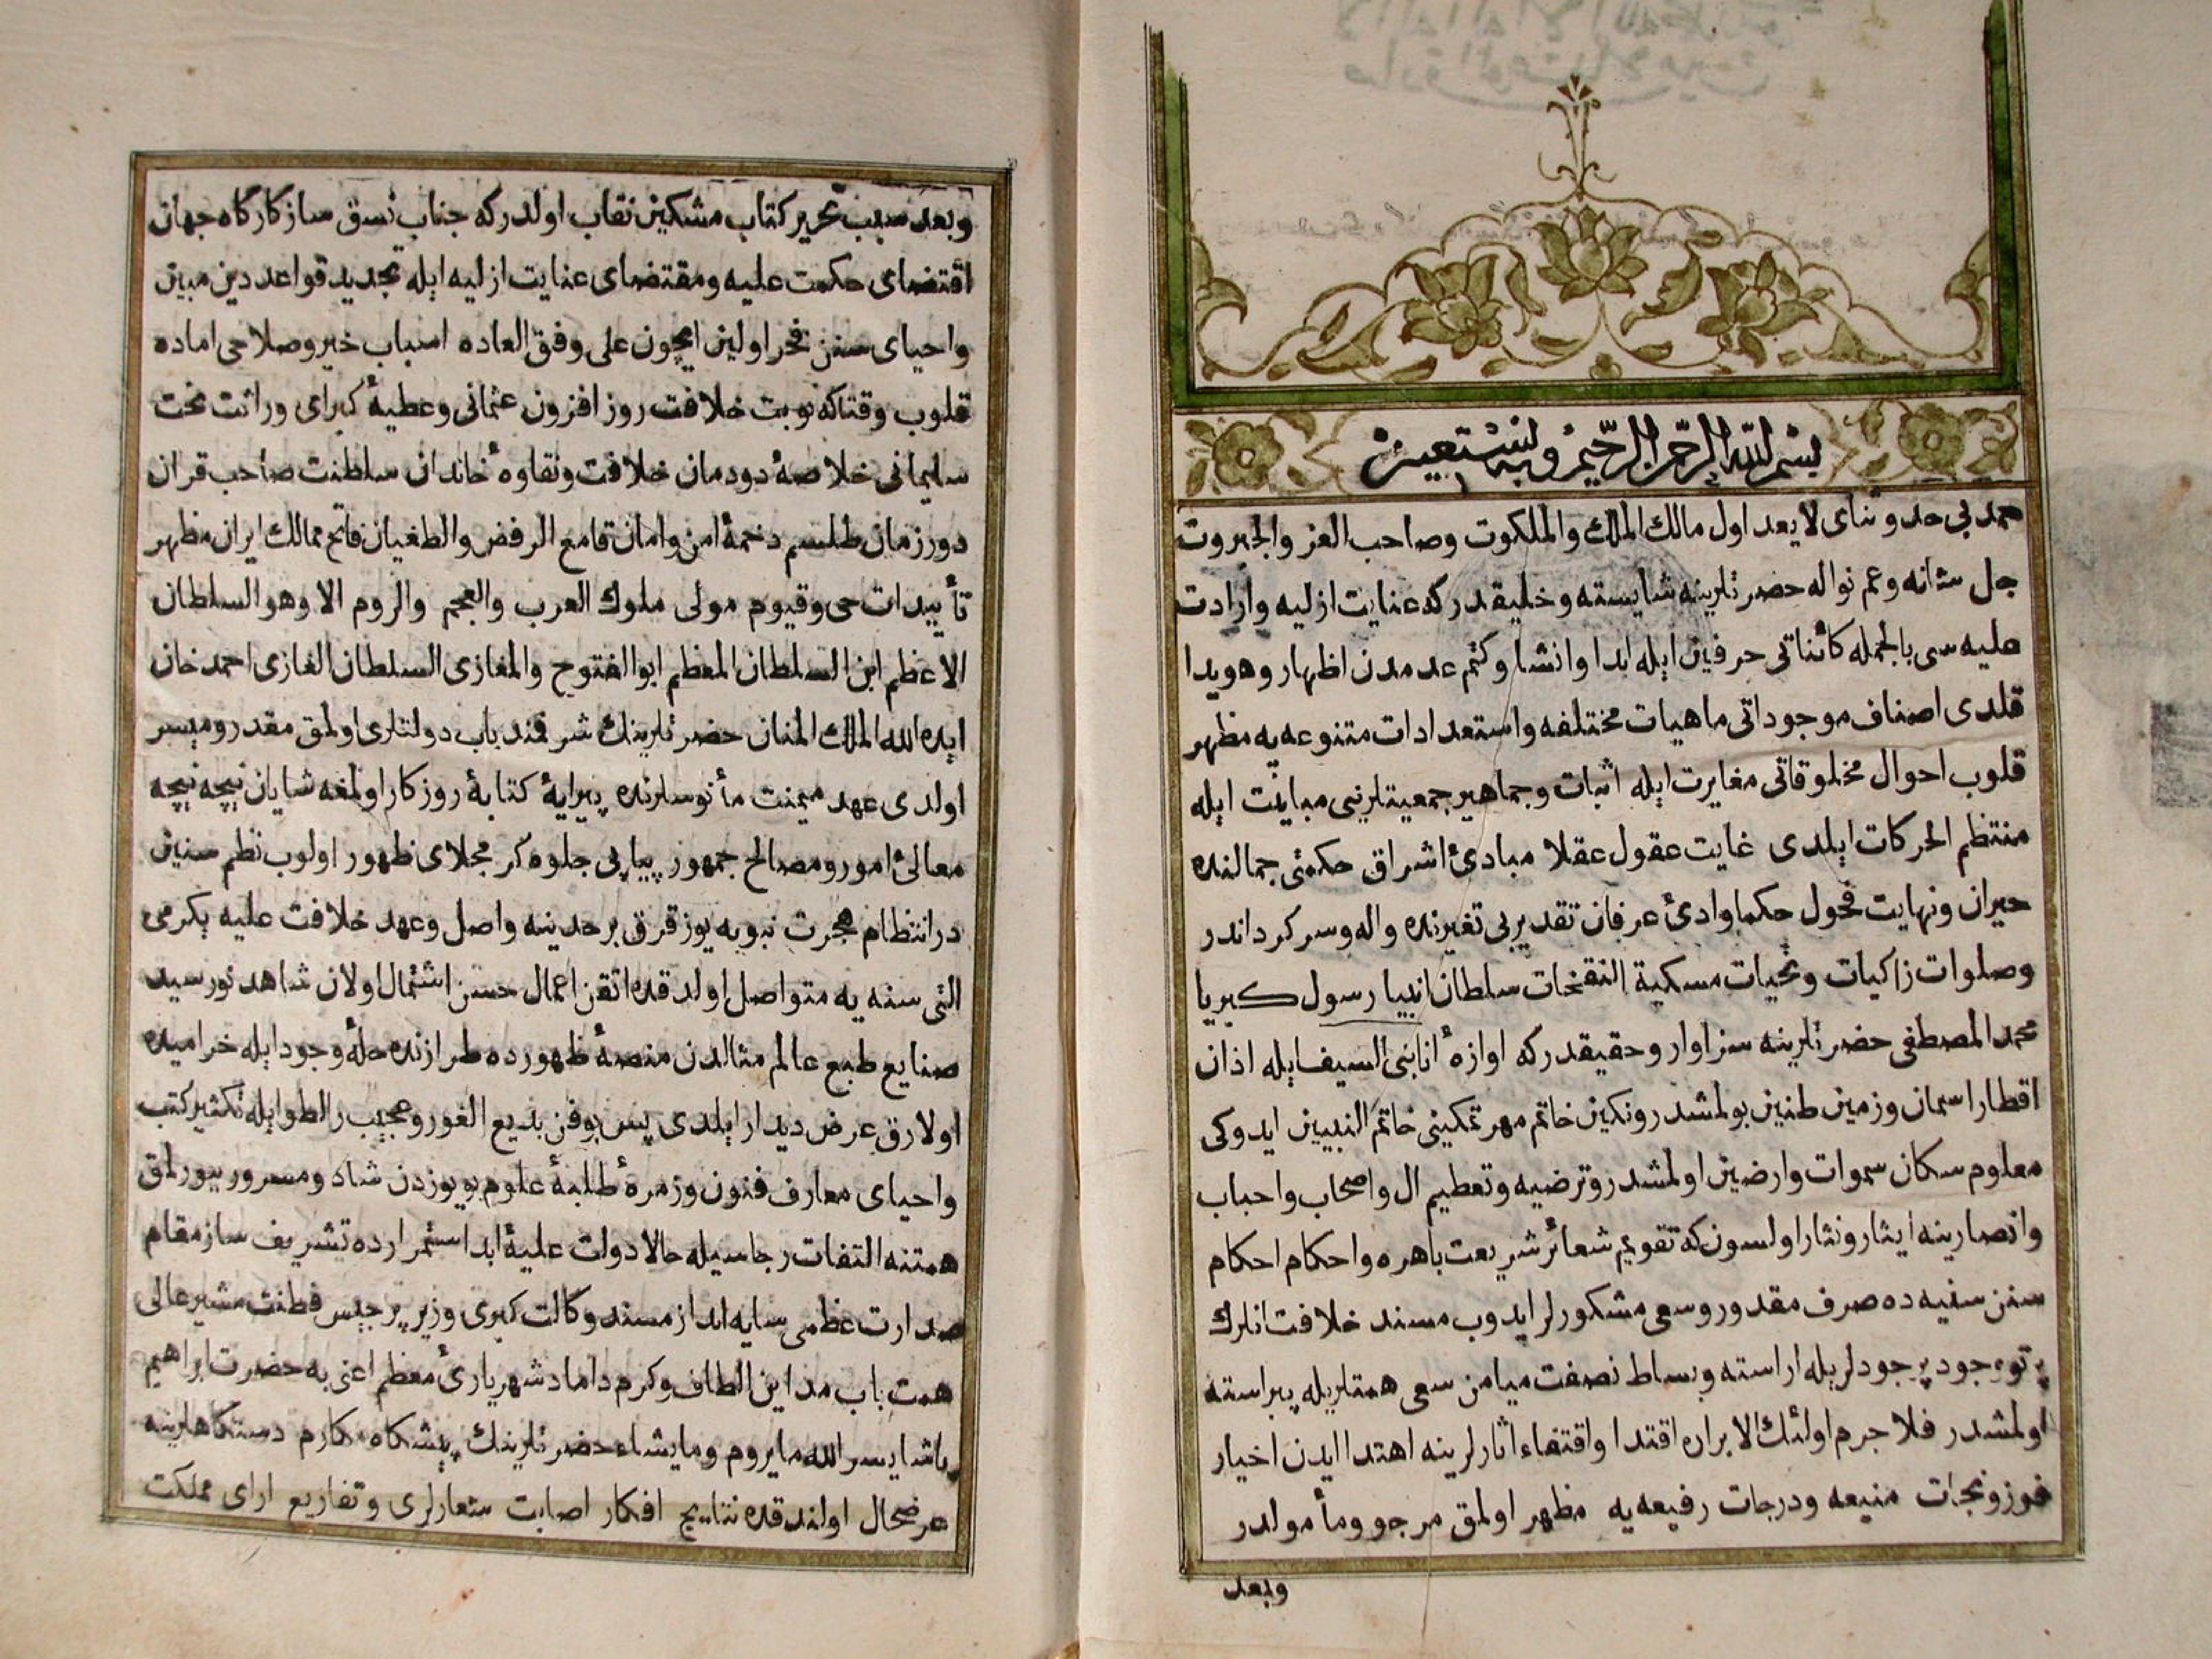 بسم الله الرحمن الرحيم وبه نستعين
حمد بی حد و ثنای لا یعد اول مالك الملك والملكوت وصاحب العز والجبروت
جل شانه وعم نواله حضرتلرینه شایسته وخلیقدر که عنایت ازلیه وارادت
علیه سی بالجمله کائناتی حرفین ایله ابدا وانشا وکتم عدمدن اظهار وهویدا
قلدی اصناف موجوداتی ماهیات مختلفه واستعدادات متنوعه یه مظهر
قلوب احوال مخلوقاتی مغایرت ایله اثبات وجماهیر جمعیتلرنی مباینت ایله
منتظم الحرکات ایلدی غایت عقول عقلا مبادیٔ اشراق حکمتی جمالنده
حیران ونهایت فحول حکما وادیٔ عرفان تقدیر بی تغیرنده واله وسرکرداندر
وصلوات زاکیات وتحیات مسکیة النفخات سلطان انبیا رسول کبریا
محمد المصطفی حضرتلرینه سزاوار وحقیقدر که اوازهٔ انا نبی السیف ایله اذان
اقطار اسمان وزمین طنین بولمشدر ونکین خاتم مهر تمکینی خاتم النبیین ایدوکی
معلوم سکان سموات وارضین اولمشدر وترضیه وتعظیم ال واصحاب واحباب
وانصارینه ایثار ونثار اولسون که تقویم شعائر شریعت باهره واحکام احکام
سنن سنیه ده صرف مقدور وسعی مشکورلر ایدوب مسند خلافت انلرك
پرتو وجود پر جودلریله اراسته وبساط نصفت میامن سعی همتلریله پیراسته
اولمشدر فلا جرم اولئك الابراره اقتدا واقتفاء اثارلرینه اهتدا ایدن اخیار
فوز ونجات منیعه ودرجات رفیعه یه مظهر اولمق مرجو ومأمولدر
وبعد
وبعد سبب تحریر کتاب مشکین نقاب اولدرکه جناب نسق ساز کارکاه جهان
اقتضای حکمت علیه ومقتضای عنایت ازلیه ایله تجدید قواعد دین مبین
واحیای سنن فخر اولین ایچون علی وفق العاده اسباب خیر وصلاحی اماده
قلوب وقتاکه نوبت خلافت روز افزون عثمانی وعطیهٔ کبرای وراثت تخت
سلیمانی خلاصهٔ دودمان خلافت ونقاوهٔ خاندان سلطنت صاحب قران
دور زمان طلسم دخمهٔ امن وامان قامع الرفض والطغیان فاتح ممالك ایران مظهر
تأییدات حی وقیوم مولی ملوك العرب والعجم والروم الا وهو السلطان
الاعظم ابن السلطان المعظم ابو الفتوح والمغازی السلطان الغازی احمد خان
ایده الله الملك المنان حضرتلرینك شرفمند باب دولتلری اولمق مقدر ومیسر
اولدی عهد میمنت مأنوسلرنده پیرایهٔ کتابهٔ روزکار اولمغه شایان نیچه نیچه
معالیٔ امور ومصالح جمهور پیاپی جلوه کر مجلای ظهور اولوب نظم سنین
درانتظام هجرت نبویه یوز قرق بر حدینه واصل وعهد خلافت علیه یکرمی
التی سنه یه متواصل اولدقده اتقن اعمال حسن اشتمال اولان شاهد نورسید
صنایع طبع عالم مثالدن منصهٔ ظهورده طرازنده حلهٔ وجود ایله خرامیده
اولارق عرض دیدار ایلدی پس بو فن بدیع الغور وعجیب الطور ایله تکثیر کتب
واحیای معارف فنون وزمرهٔ طلبهٔ علوم بو یوزدن شاد ومسرور بیورلمق
همتنه التفات رجاسیله حالا دولت علیهٔ ابد استمرارده تشریف ساز مقام
صدارت عظمی سایه انداز مسند وکالت کبری وزیر برجیس فطنت مشیر عالی
همت باب مداین الطاف وکرم داماد شهریاریٔ معظم اعنی به حضرت ابراهیم
پاشا یسر الله ما یروم وما یشاء حضرتلرینك پیشکاه مکارم دستکاهلرینه
عرضحال اولندقده نتایج افکار اصابت شعارلری وتفاریع ارای مملکت